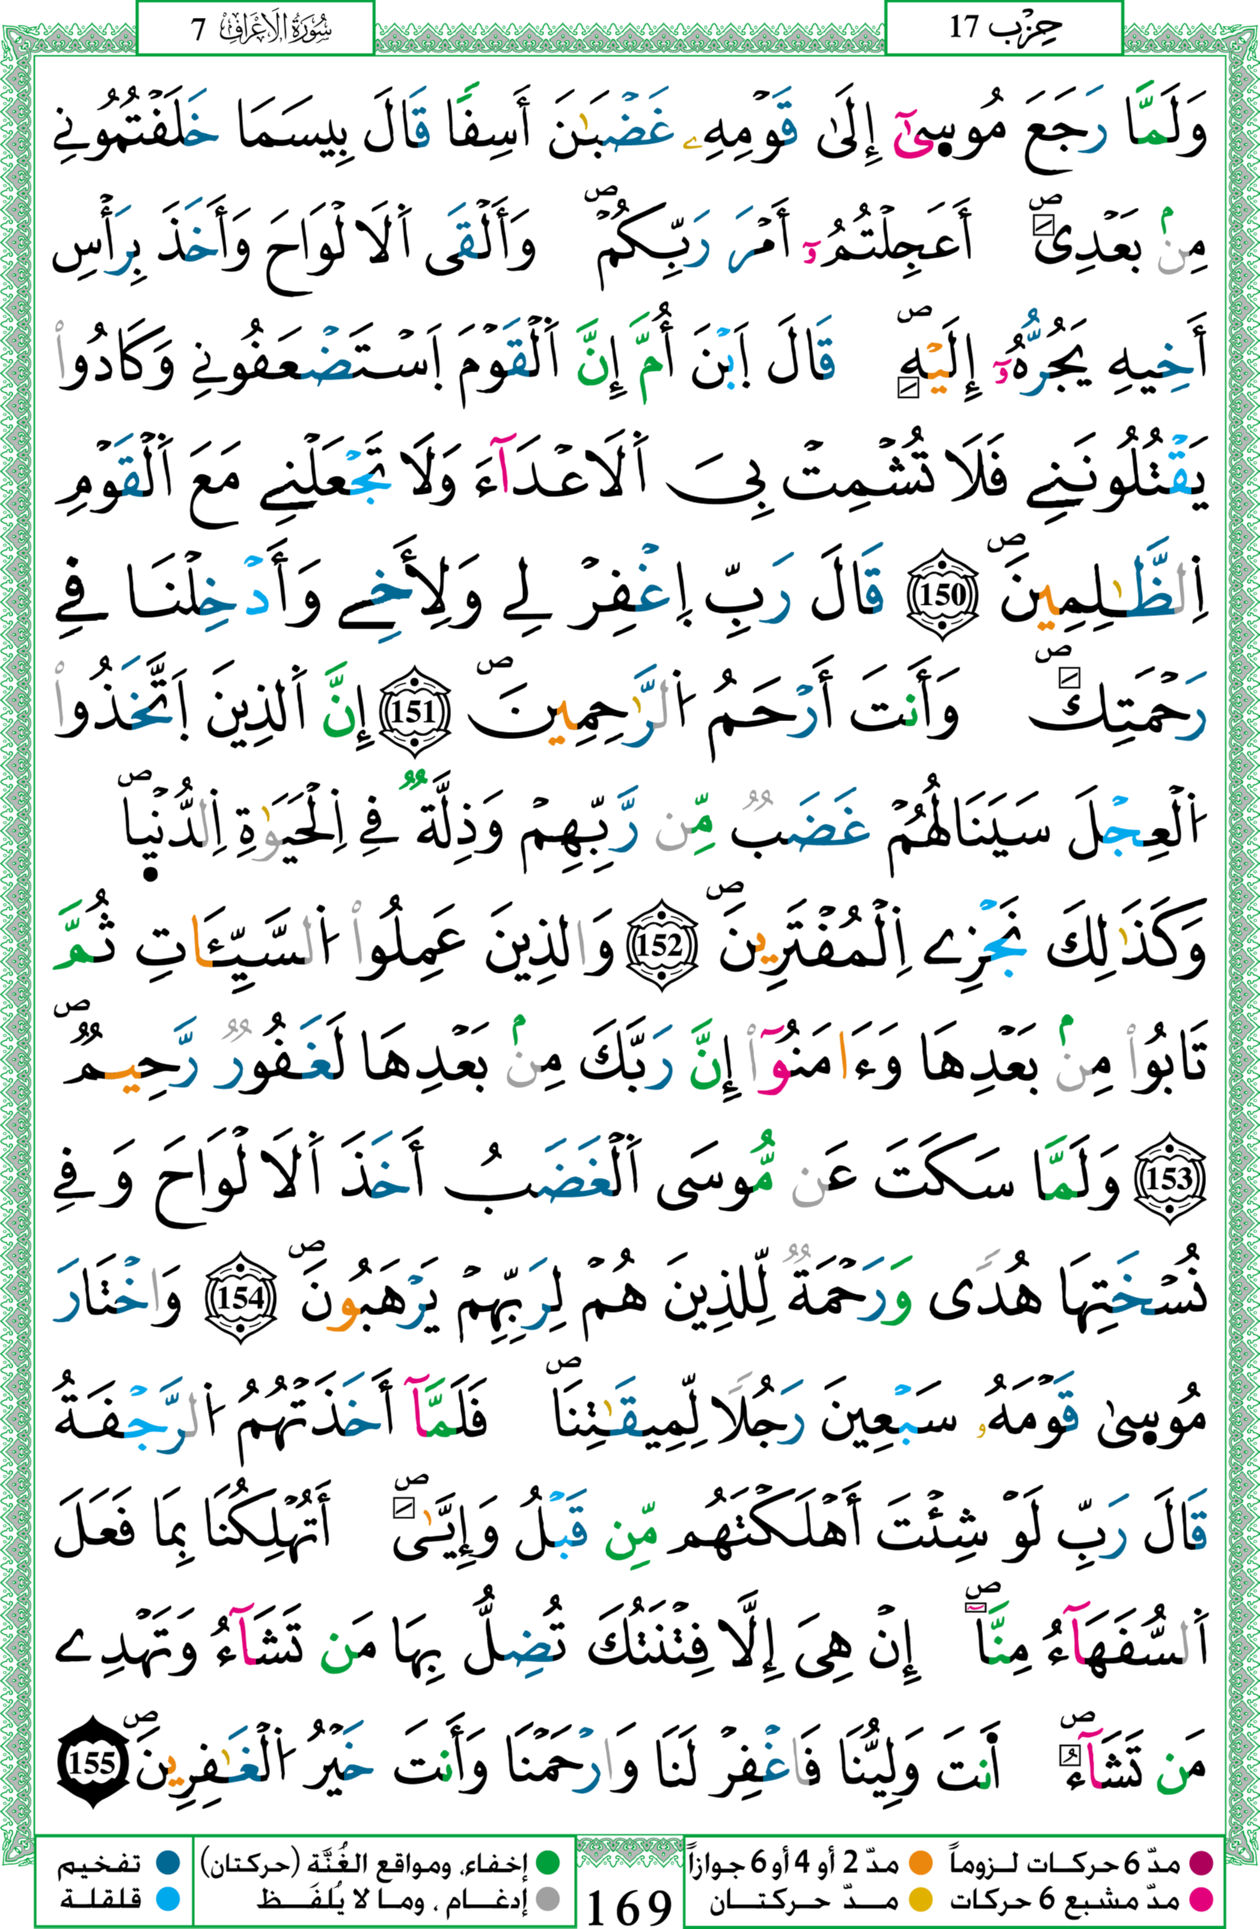 سُورَةُ الَاعْرَافِ 7
حِزْب 17
وَلَمَّا رَجَعَ مُوسِىٰٓ إِلَىٰ قَوْمِهِۦ غَضْبَٰنَ أَسِفٗا قَالَ بِيسَمَا خَلَفْتُمُونِے
مِنۢ بَعْدِيَ ۖ أَعَجِلْتُمُۥٓ أَمْرَ رَبِّكُمْ ۖ وَأَلْقَى اَ۬لَالْوَاحَ وَأَخَذَ بِرَأْسِ
أَخِيهِ يَجُرُّهُۥٓ إِلَيْهِ ۖ قَالَ اَ۪بْنَ أُمَّ إِنَّ اَ۬لْقَوْمَ اَ۪سْتَضْعَفُونِے وَكَادُواْ
يَقْتُلُونَنِے فَلَا تُشْمِتْ بِيَ اَ۬لَاعْدَآءَ وَلَا تَجْعَلْنِے مَعَ اَ۬لْقَوْمِ
اِ۬لظَّٰلِمِينَ ۖ 150 قَالَ رَبِّ اِ۪غْفِرْ لِے وَلِأَخِے وَأَدْخِلْنَا فِے
رَحْمَتِكَ ۖ وَأَنتَ أَرْحَمُ اُ۬لرَّٰحِمِينَ ۖ 151 إِنَّ اَ۬لذِينَ اَ۪تَّخَذُواْ
اُ۬لْعِجْلَ سَيَنَالُهُمْ غَضَبٞ مِّن رَّبِّهِمْ وَذِلَّةٞ فِے اِ۬لْحَيَوٰةِ اِ۬لدُّنْي۪ا ۖ
وَكَذَٰلِكَ نَجْزِے اِ۬لْمُفْتَرِينَ ۖ 152 وَالذِينَ عَمِلُواْ اُ۬لسَّيِّـَٔاتِ ثُمَّ
تَابُواْ مِنۢ بَعْدِهَا وَءَامَنُوٓاْ إِنَّ رَبَّكَ مِنۢ بَعْدِهَا لَغَفُورٞ رَّحِيمٞ ۖ
153 وَلَمَّا سَكَتَ عَن مُّوسَى اَ۬لْغَضَبُ أَخَذَ اَ۬لَالْوَاحَ وَفِے
نُسْخَتِهَا هُدٗى وَرَحْمَةٞ لِّلذِينَ هُمْ لِرَبِّهِمْ يَرْهَبُونَ ۖ 154 وَاخْتَارَ
مُوس۪ىٰ قَوْمَهُۥ سَبْعِينَ رَجُلٗا لِّمِيقَٰتِنَا ۖ فَلَمَّآ أَخَذَتْهُمُ اُ۬لرَّجْفَةُ
قَالَ رَبِّ لَوْ شِئْتَ أَهْلَكْتَهُم مِّن قَبْلُ وَإِيَّٰيَ ۖ أَتُهْلِكُنَا بِمَا فَعَلَ
اَ۬لسُّفَهَآءُ مِنَّآ ۖ إِنْ هِيَ إِلَّا فِتْنَتُكَ تُضِلُّ بِهَا مَن تَشَآءُ وَتَهْدِے
مَن تَشَآءُ ۖ اَ۬نتَ وَلِيُّنَا فَاغْفِرْ لَنَا وَارْحَمْنَا وَأَنتَ خَيْرُ اُ۬لْغَٰفِرِينَ ۖ 155
مدّ 6 حركات لـزوماً مدّ 2 أو 4 أو 6 جوازاً إخفاء، ومواقع الغُنَّة (حركتان) تفخيم
مدّ مشبع 6 حركات مـدّ حركتــان إدغام ، ومـا لا يُلفَـظ قلقلة
169